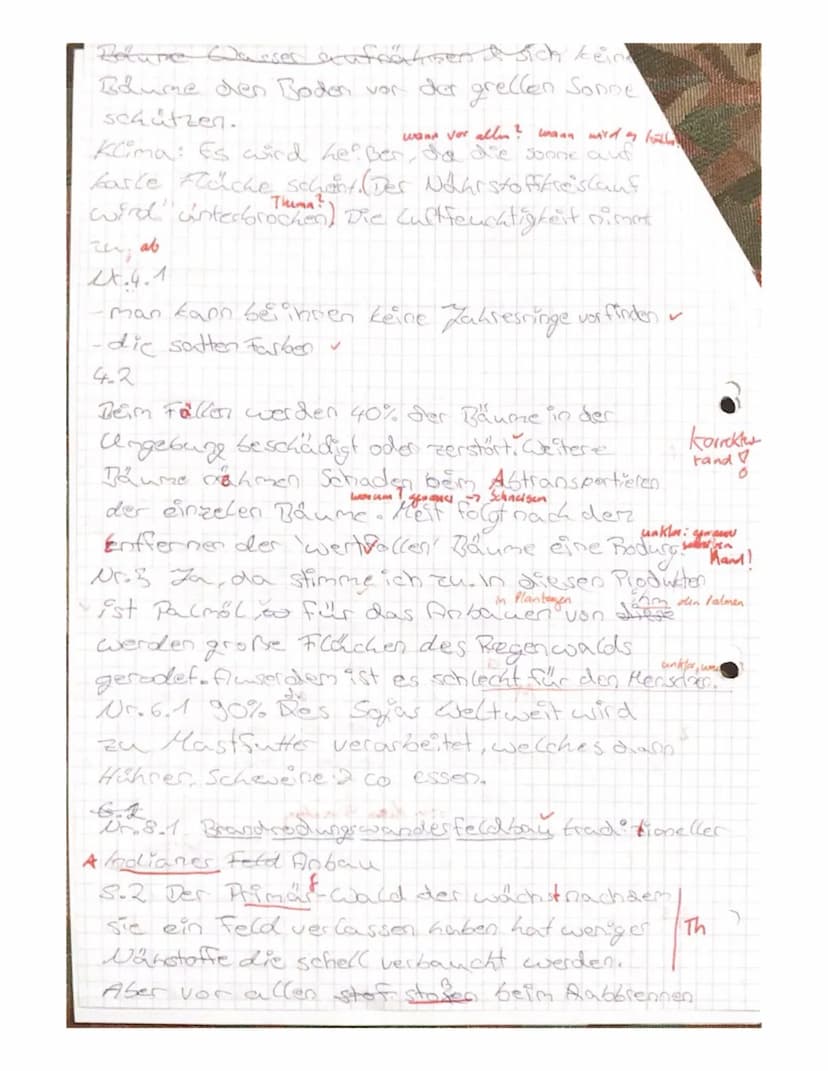 Bäume Wasser aufnähmen & sich keine
Bäume den Boden vor der grellen Sonne
schützen.
wann vor allem? wann wird es kühl?
Klima: Es wird heißer, da die sonne auf
karle Fläche scheint. (Der Nährstoffkreislauf
Thema?
wird unterbrochen) Die Luftfeuchtigkeit nimmt
zu, ab
Nr.4.1
- man kann bei ihnen keine Jahresringe vorfinden ✓
- die satten Farben ✓
4.2
Beim Fällen werden 40% der Bäume in der
Umgebung beschädigt oder zerstört. Weitere
Korrektur
rand!
Bäume nähmen Schaden beim Abtransportieren
warum? genauer → Schneisen
der einzelen Bäume. Meist folgt nach den
unklar: genauer
Entfernen der 'wertvollen' Bäume eine Rodung.
Rand!
Nr.5 Ja, da stimme ich zu. In diesen Produkten
in Plantagen
den Palmen
ist Palmöl, für das Anbauen von diese
werden große Flächen des Regenwalds
unklar,
gerodet. Auserdem ist es schlecht für den Menschen.
Nr.6.1 90% des Sojas Weltweit wird
zu Mastfutter verarbeitet, welches dann
Hühner, Schweine & co essen.
6.2
Nr.8.1 Brandrodungswandesfeldbau traditioneller
A Indianer Feld Anbau
8.2 Der Primär-Wald der wächst nachdem
sie ein Feld verlassen haben hat weniger
Th
Nährstoffe die schell verbaucht werden.
Aber vor allen stof stoßen beim Aabbrennen